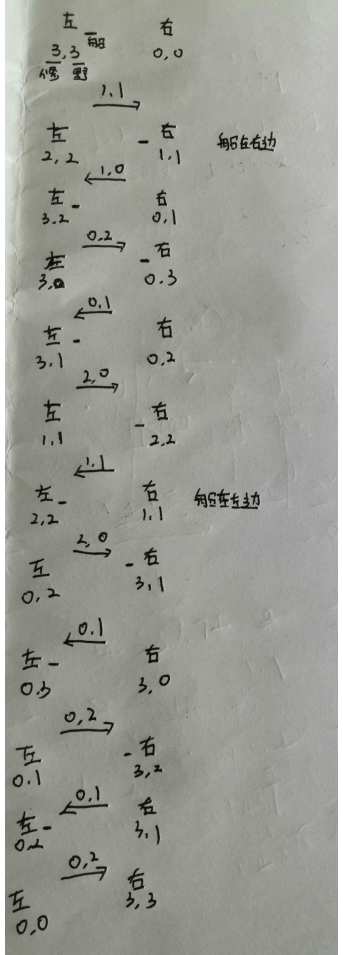 左 船 右
3,3 0,0
修 野
1,1
左 - 右 船在右边
2,2 1,1
1,0
左 - 右
3,2 0,1
0,2
左 - 右
3,0 0,3
0,1
左 - 右
3,1 0,2
2,0
左 - 右
1,1 2,2
1,1
左 - 右 船在左边
2,2 1,1
2,0
左 - 右
0,2 3,1
0,1
左 - 右
0,3 3,0
0,2
左 - 右
0,1 3,2
0,1
左 - 右
0,2 3,1
0,2
左 右
0,0 3,3